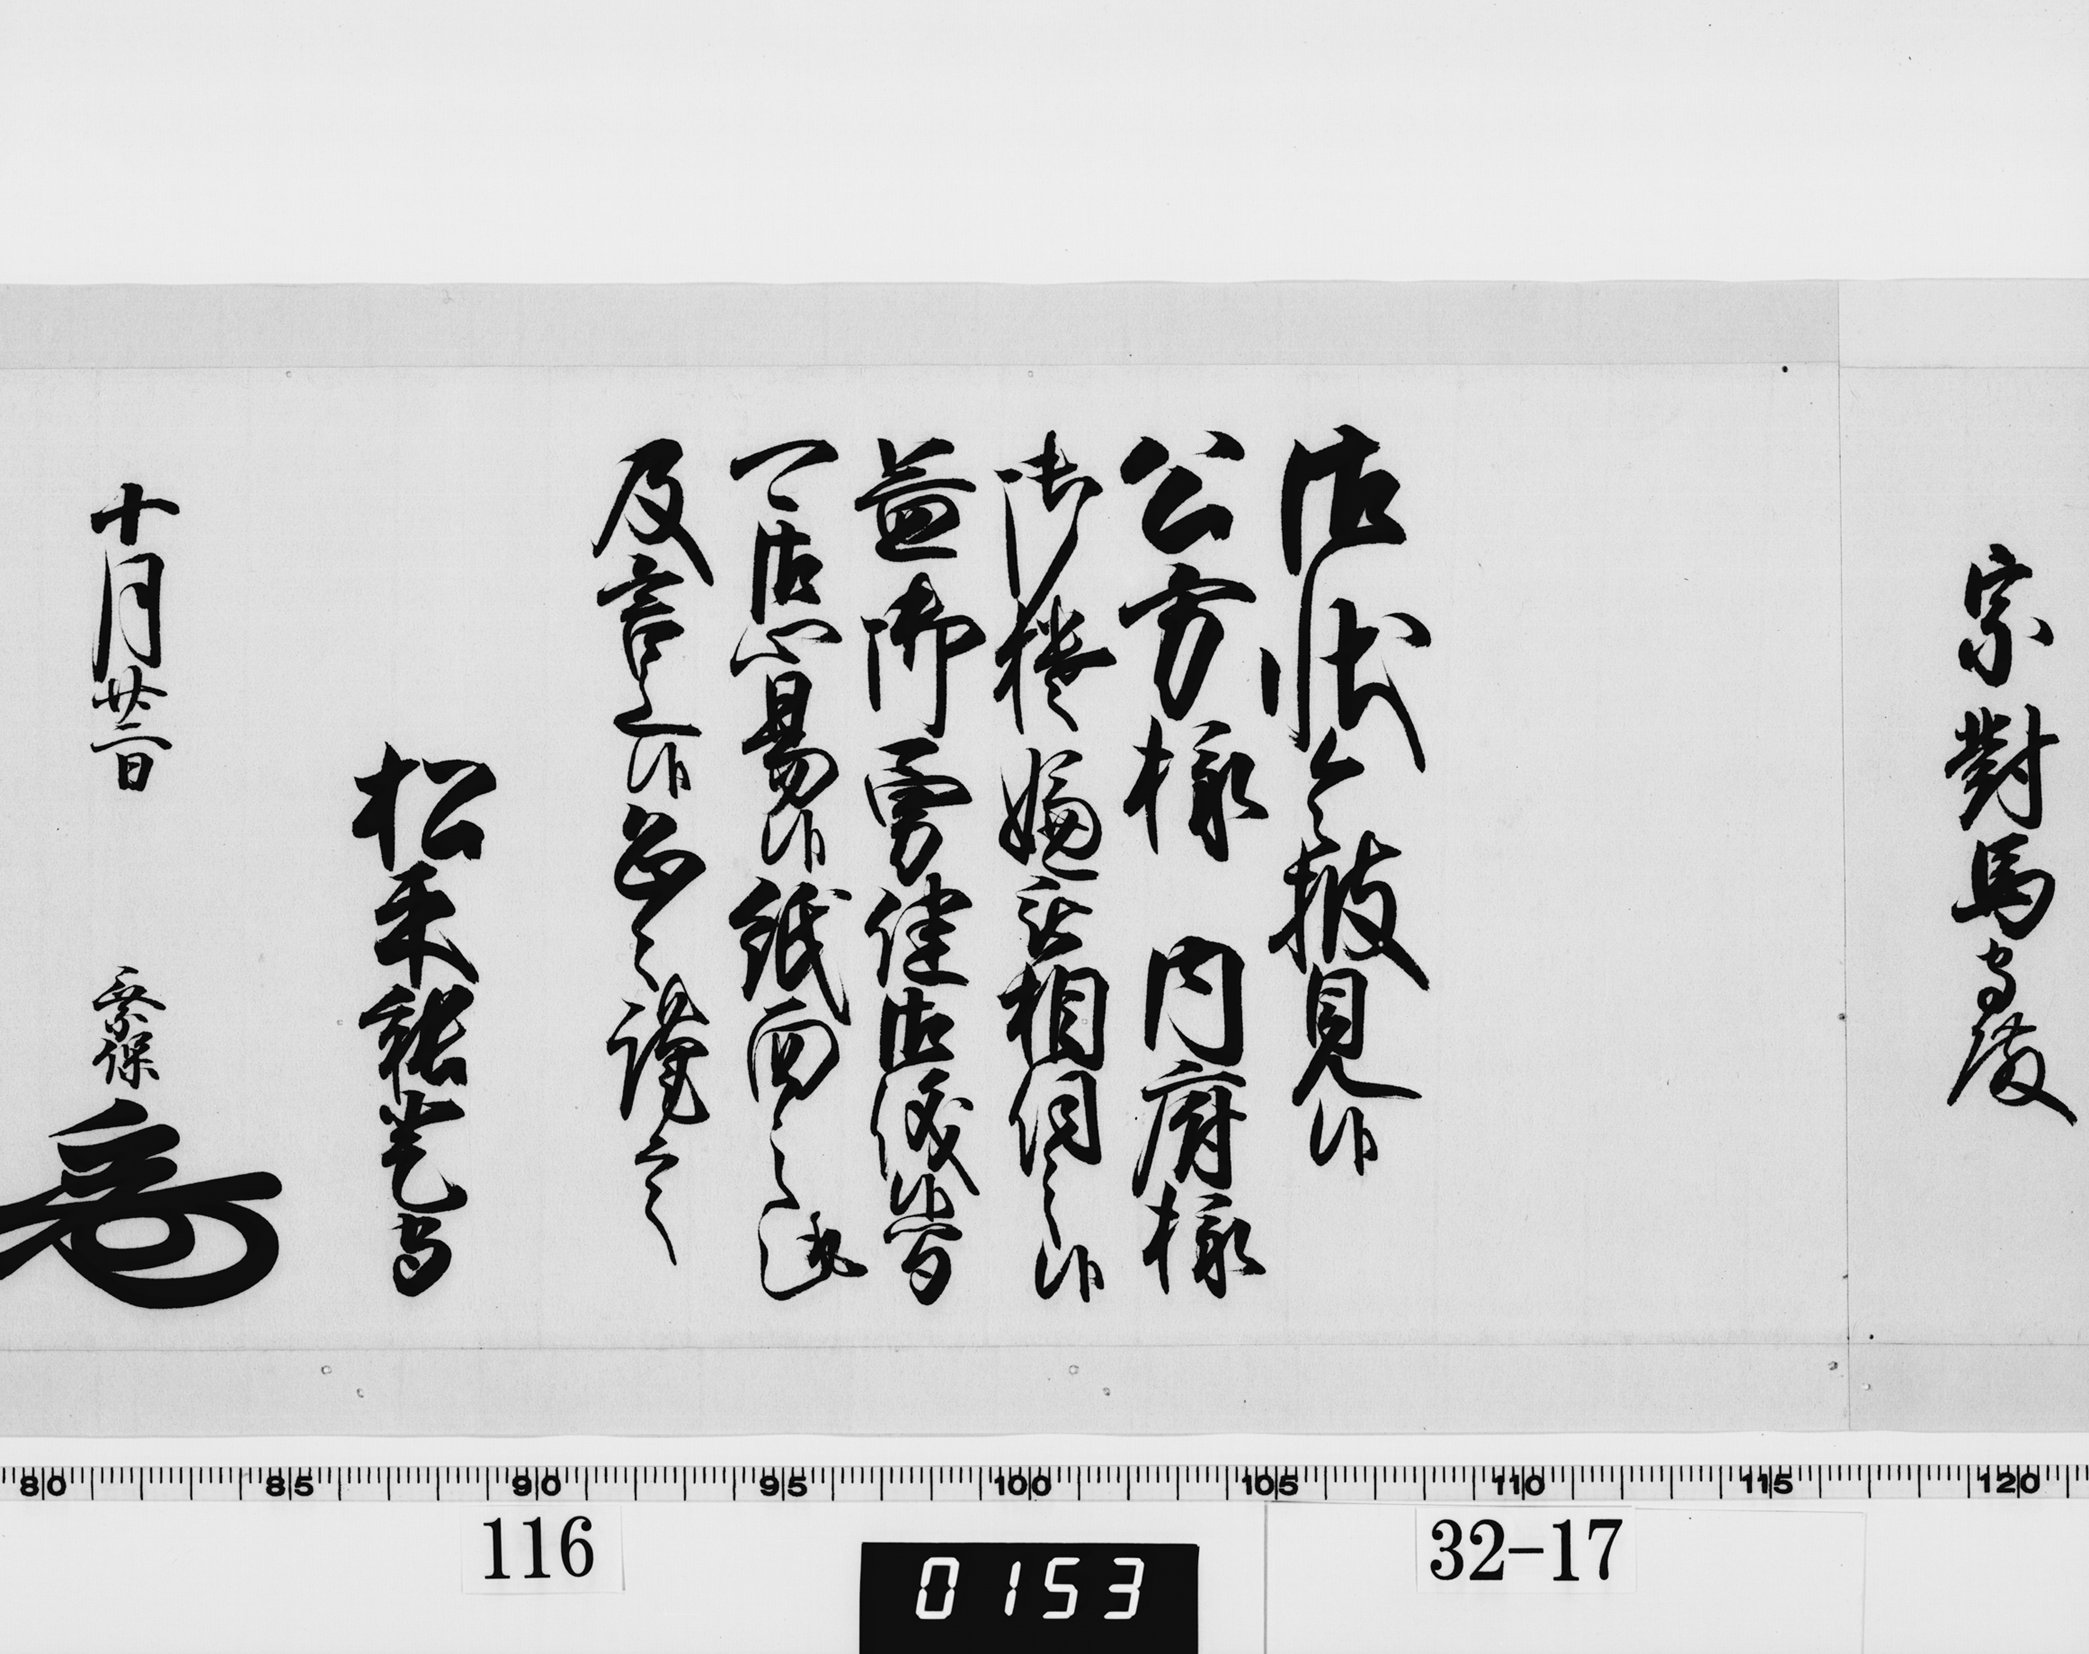 宗對馬守殿
御状令披見候
公方様　内府様
御機嫌被相伺之候
益御勇健御儀候間
可御心易候紙面之趣
及言上候恐々謹言
松平能登守
十月廿二日　乗保
80 85 90 95 100 105 110 115 120
116
0153
32-17